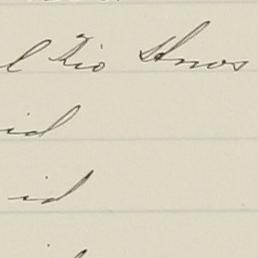 l Rio Hnos
id
id